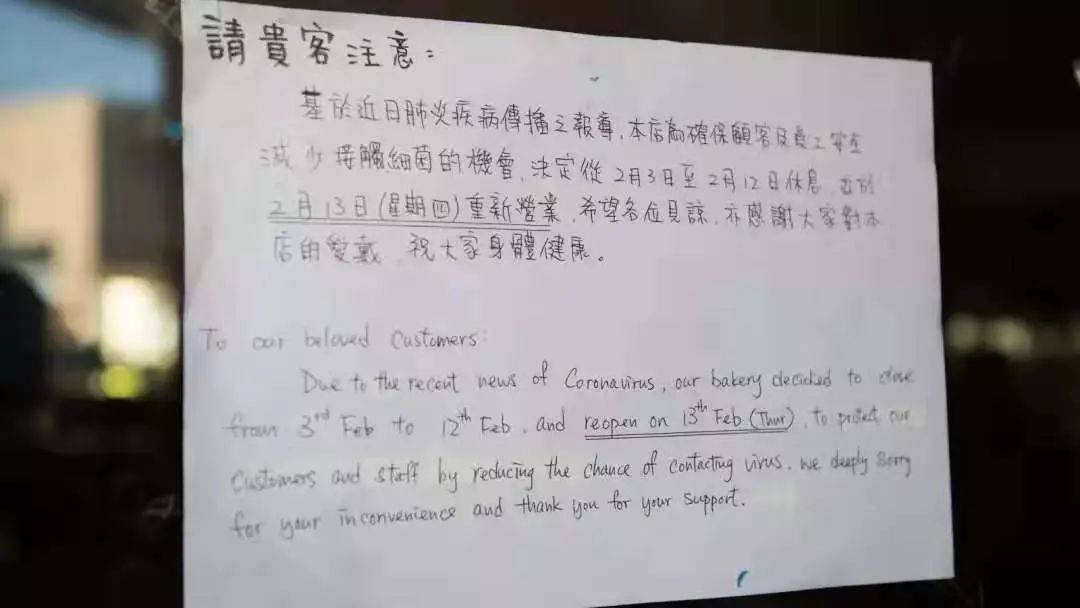 請貴客注意：
基於近日肺炎疾病傳播之報導，本店為確保顧客及員工安全
減少接觸細菌的機會，決定從2月3日至2月12日休息，並於
2月13日(星期四)重新營業，希望各位見諒，亦感謝大家對本
店的愛戴，祝大家身體健康。
To our beloved Customers:
Due to the recent news of Coronavirus, our bakery decided to close
from 3rd Feb to 12th Feb, and reopen on 13th Feb (Thur), to protect our
customers and staff by reducing the chance of contacting virus. we deeply sorry
for your inconvenience and thank you for your support.